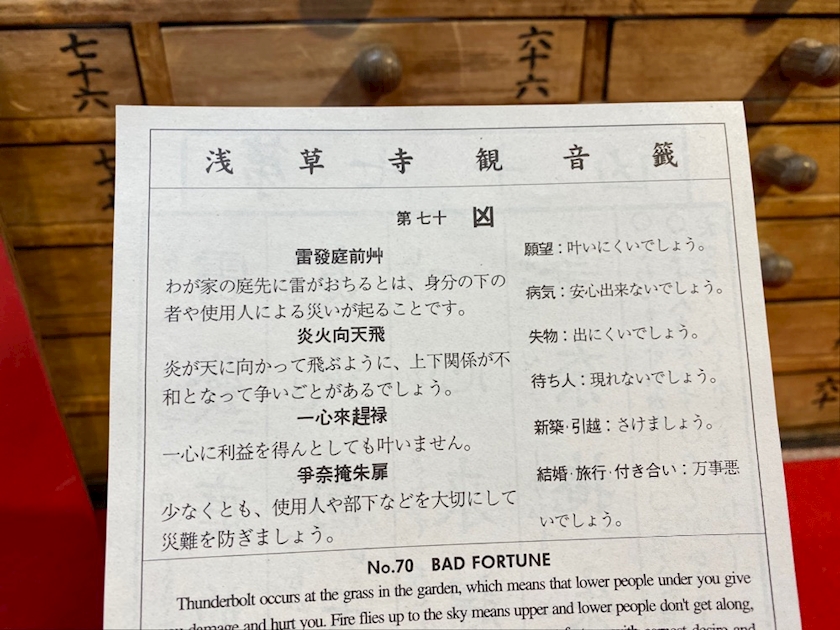 七十六
六十六
浅草寺観音籤
第七十 凶
雷發庭前艸
わが家の庭先に雷がおちるとは、身分の下の
者や使用人による災いが起ることです。
炎火向天飛
炎が天に向かって飛ぶように、上下関係が不
和となって争いごとがあるでしょう。
一心來趕禄
一心に利益を得んとしても叶いません。
爭奈掩朱扉
少なくとも、使用人や部下などを大切にして
災難を防ぎましょう。
願望：叶いにくいでしょう。
病気：安心出来ないでしょう。
失物：出にくいでしょう。
待ち人：現れないでしょう。
新築·引越：さけましょう。
結婚·旅行·付き合い：万事悪
いでしょう。
No.70 BAD FORTUNE
Thunderbolt occurs at the grass in the garden, which means that lower people under you give
damage and hurt you. Fire flies up to the sky means upper and lower people don't get along,